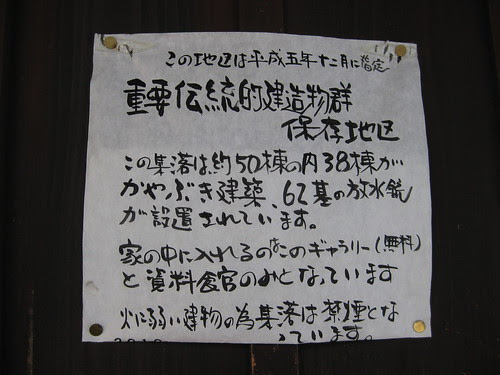 この地区は平成五年十二月に指定
重要伝統的建造物群
保存地区
この集落は約50棟の内38棟が
かやぶき建築、62基の放水銃
が設置されています。
家の中に入れるのはこのギャラリー(無料)
と資料館のみとなっています
火に弱い建物の為集落は禁煙とな
っています。